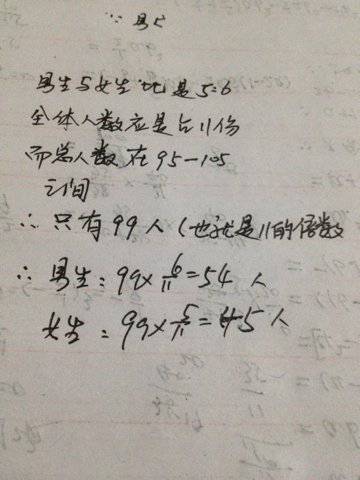 ∵ 男
男生与女生比是5:6
全体人数应是占11份
而总人数在95—105
之间
∴ 只有99人(也就是11的倍数
∴ 男生:99×6/11=54人
女生:99×5/11=45人